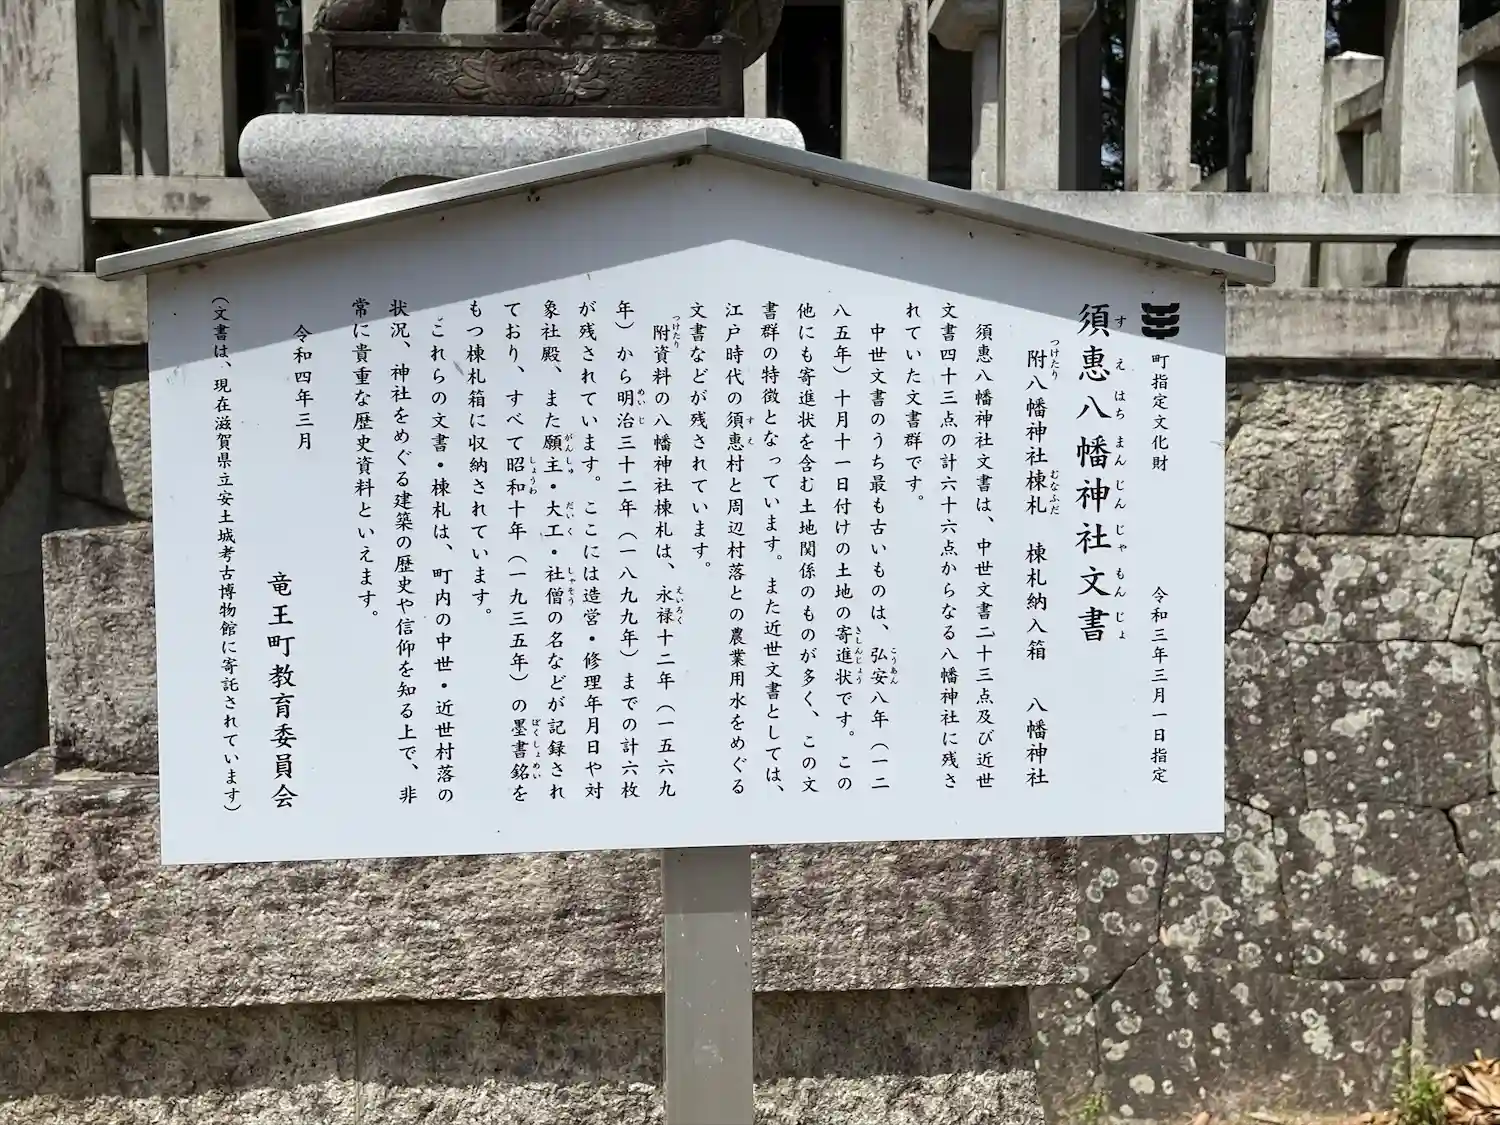 町指定文化財　令和三年三月一日指定
須惠八幡神社文書
附八幡神社棟札　棟札納入箱　八幡神社
須惠八幡神社文書は、中世文書二十三点及び近世
文書四十三点の計六十六点からなる八幡神社に残さ
れていた文書群です。
中世文書のうち最も古いものは、弘安八年（一二
八五年）十月十一日付けの土地の寄進状です。この
他にも寄進状を含む土地関係のものが多く、この文
書群の特徴となっています。また近世文書としては、
江戸時代の須惠村と周辺村落との農業用水をめぐる
文書などが残されています。
附資料の八幡神社棟札は、永禄十二年（一五六九
年）から明治三十二年（一八九九年）までの計六枚
が残されています。ここには造営・修理年月日や対
象社殿、また願主・大工・社僧の名などが記録され
ており、すべて昭和十年（一九三五年）の墨書銘を
もつ棟札箱に収納されています。
これらの文書・棟札は、町内の中世・近世村落の
状況、神社をめぐる建築の歴史や信仰を知る上で、非
常に貴重な歴史資料といえます。
令和四年三月
竜王町教育委員会
（文書は、現在滋賀県立安土城考古博物館に寄託されています）